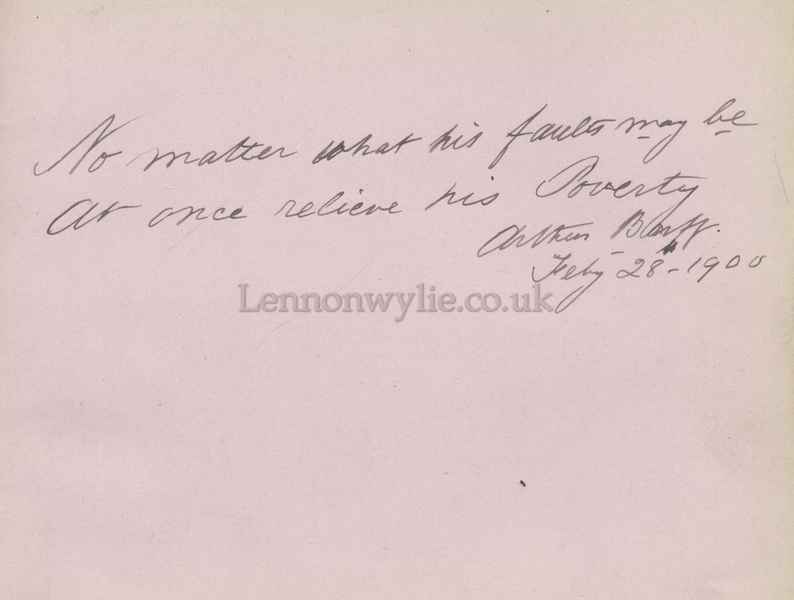 No matter what his faults may be
At once relieve his Poverty
Arthur Barff.
Feby 28th - 1900
Lennonwylie.co.uk